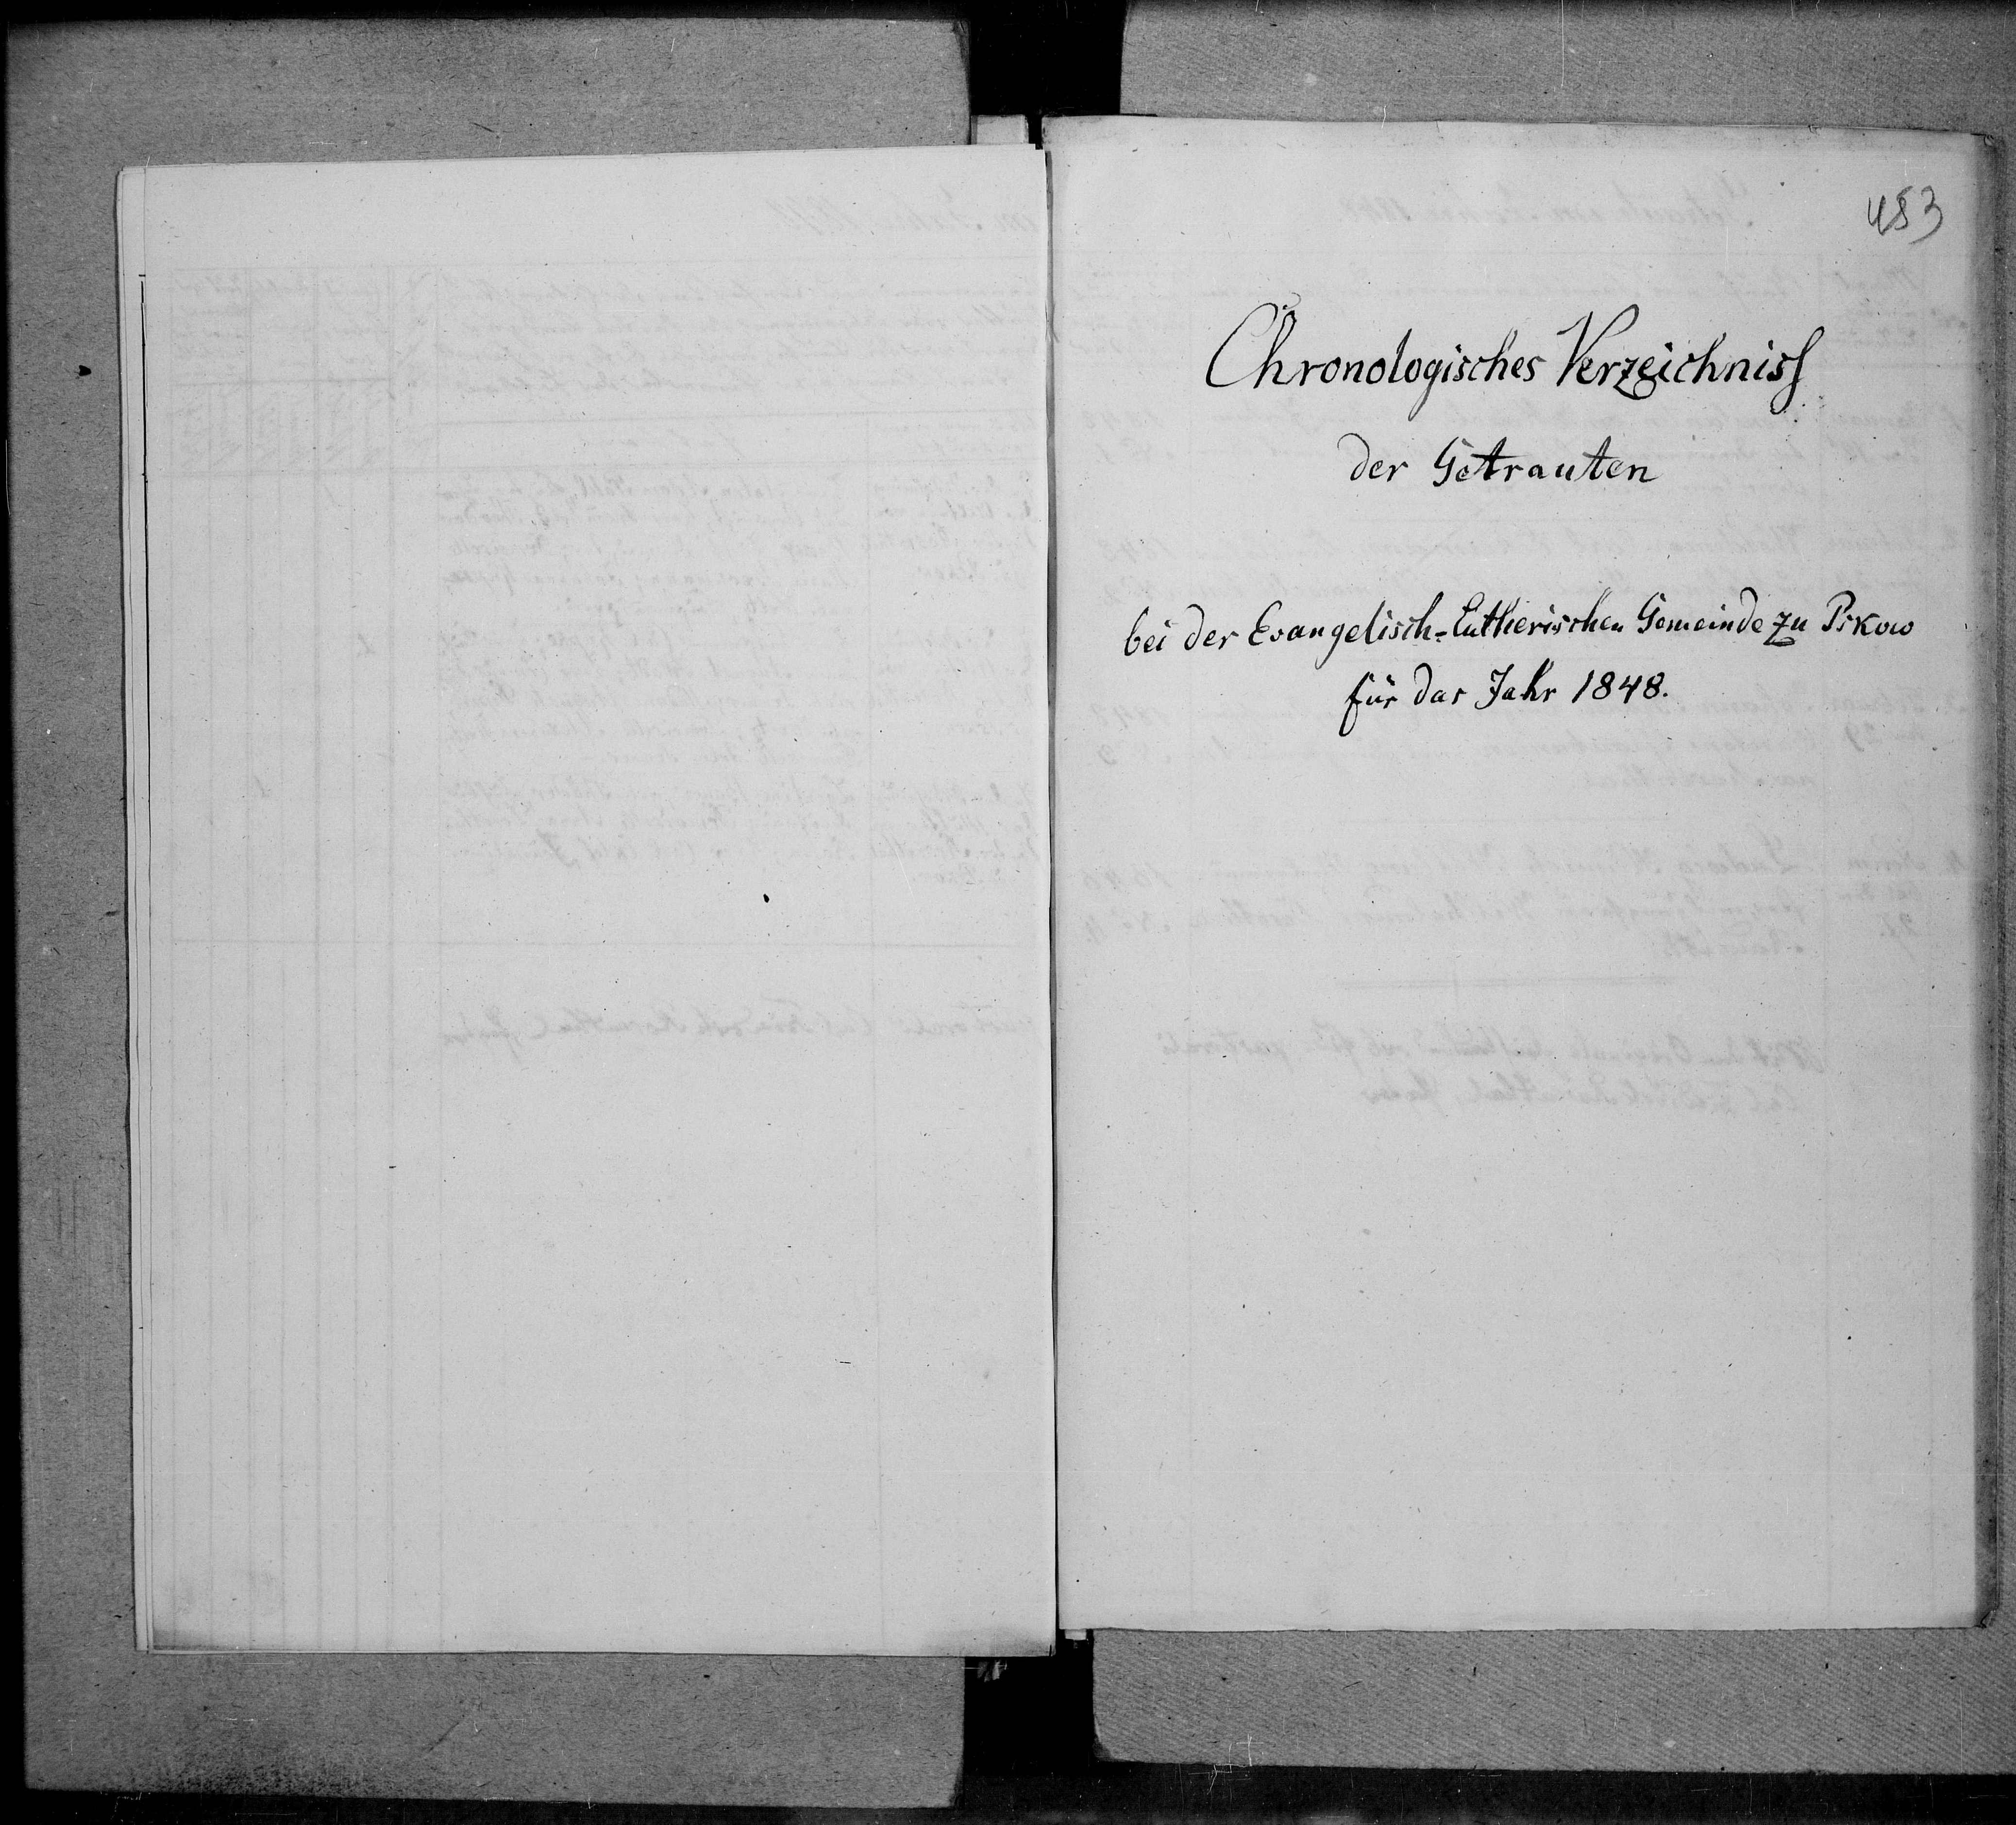 453
Chronologisches Verzeichniss
der Getrauten
bei der Evangelisch-Lutherischen Gemeinde zu Pskow
für das Jahr 1848.